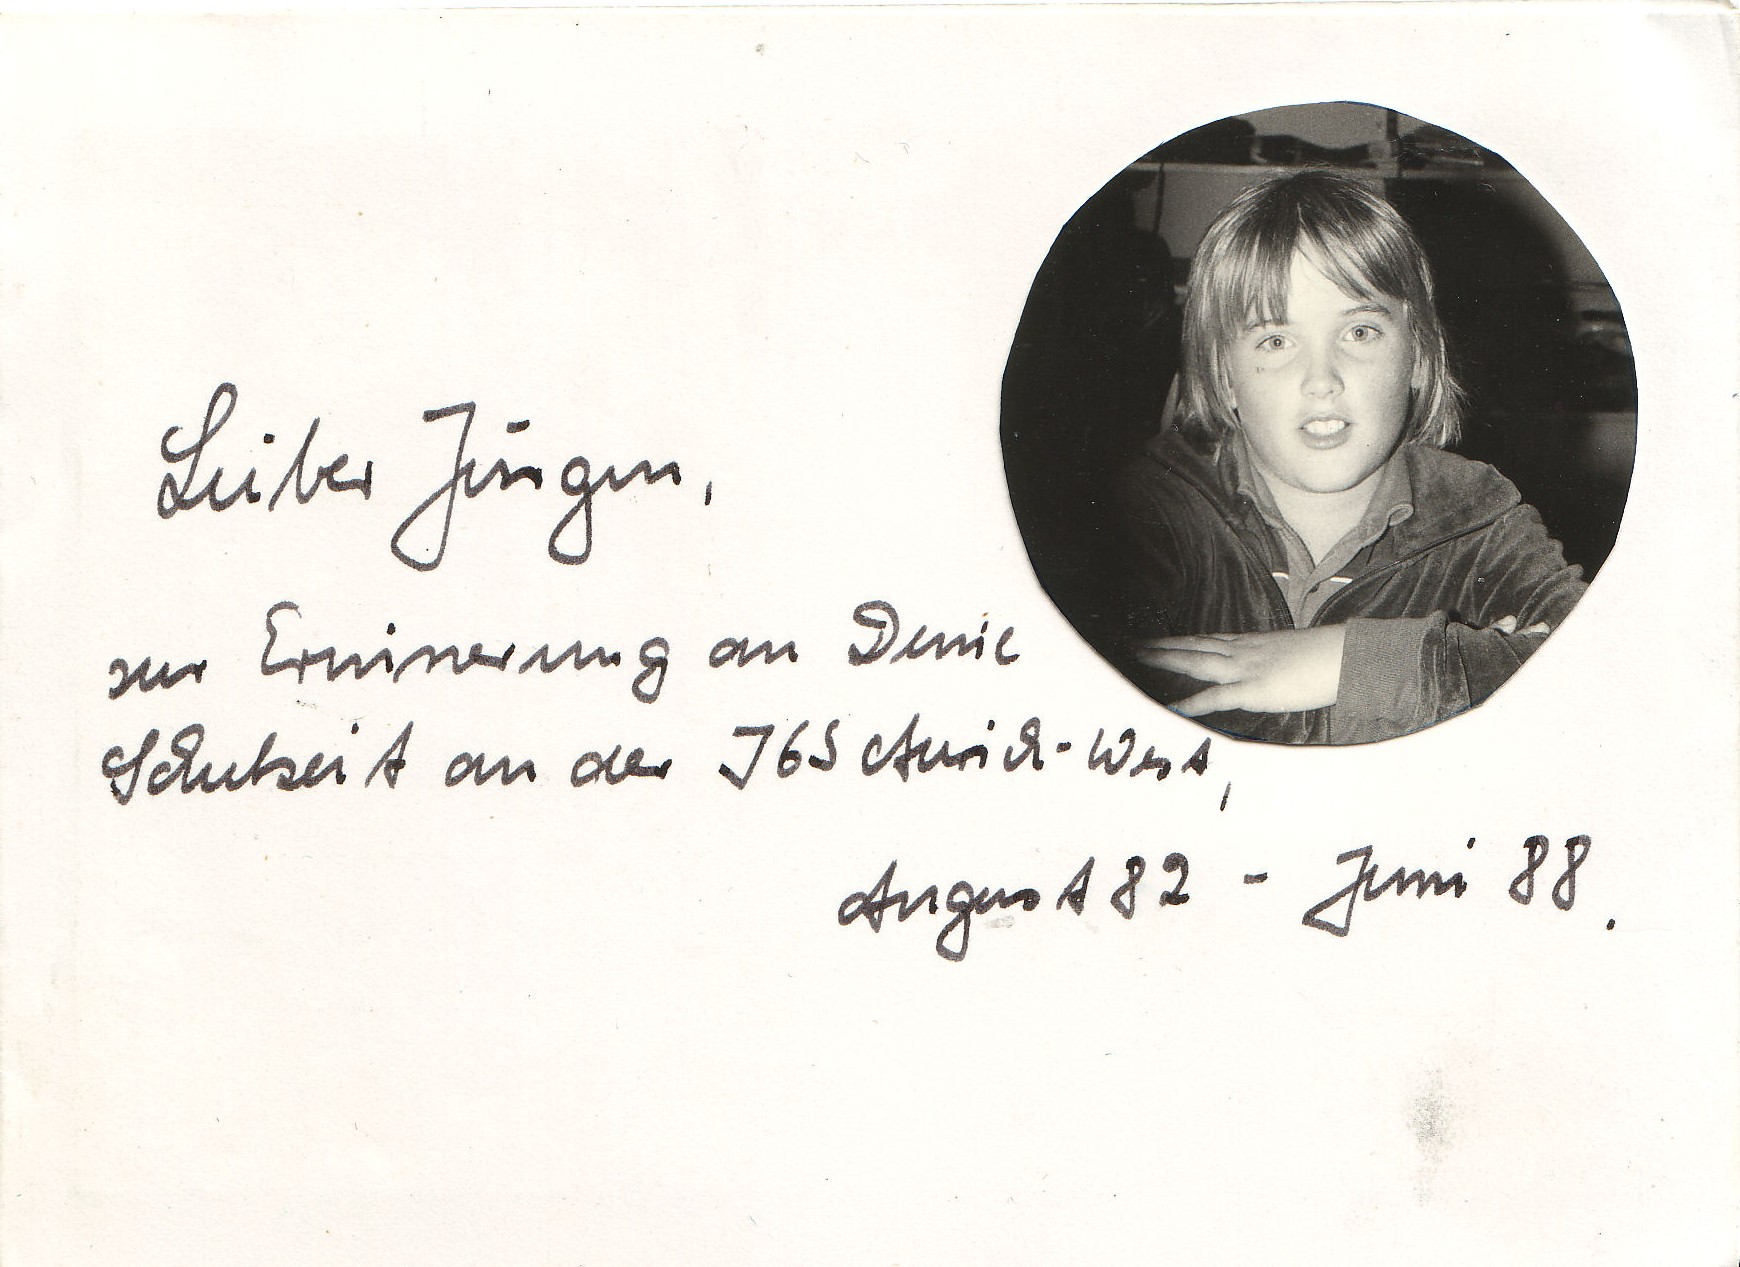 Lieber Jürgen,
zur Erinnerung an Deine
Schulzeit an der IGS Aurich-West,
August 82 - Juni 88.